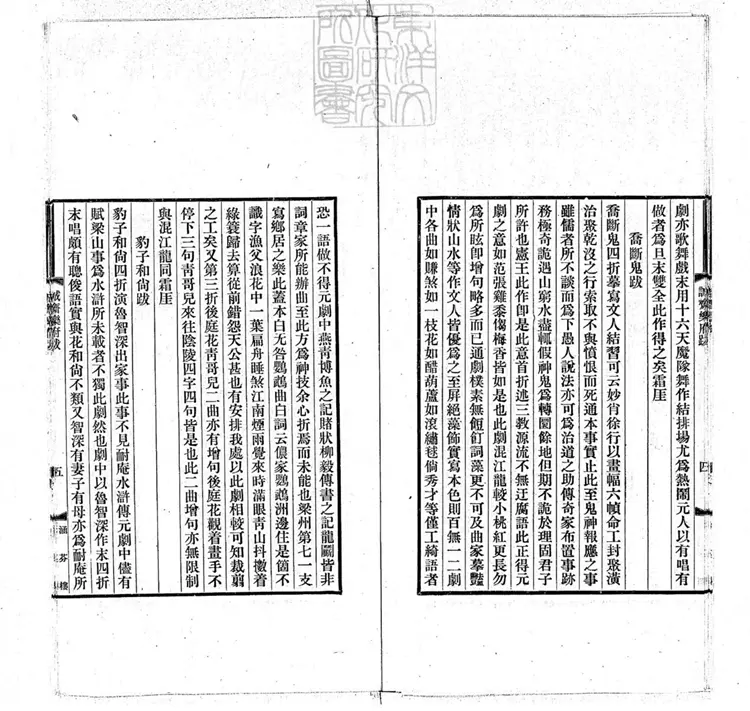 劇亦歌舞戲末用十六天魔隊舞作結排場尤為熱鬧元人以有唱有
做者為旦末雙全此作得之矣霜厓
喬斷鬼跋
喬斷鬼四折摹寫文人結習可云妙肖徐行以畫幅六幀命工封聚潢
治聚乾沒之行索取不與憤恨而死通本事實止此至鬼神報應之事
雖儒者所不談而為下愚人說法亦可為治道之助傳奇家布置事跡
務極奇詭遇山窮水盡輒假神鬼為轉圜餘地但期不詭於理固君子
所許也憲王此作卽是此意首折述三教源流不無迂腐語此正得元
劇之意如范張雞黍㑳梅香皆如是也此劇混江龍較小桃紅更長勿
為所眩卽增句略多而已通劇樸素無餖飣詞藻更不可及曲家摹豔
情狀山水等作文人皆優為之至屏絕藻飾實寫本色則百無一二劇
中各曲如賺煞如一枝花如醋葫蘆如滾繡毬倘秀才等僅工綺語者
誠齋樂府跋
四
恐一語做不得元劇中燕青博魚之記賭狀柳毅傳書之記龍鬬皆非
詞章家所能辦曲至此方為神技余心折焉而未能也梁州第七一支
寫鄉居之樂此蓋本白无咎鸚鵡曲白詞云儂家鸚鵡洲邊住是箇不
識字漁父浪花中一葉扁舟睡煞江南煙雨覺來時滿眼青山抖擻着
綠簑歸去算從前錯怨天公甚也有安排我處以此劇相較可知裁翦
之工矣又第三折後庭花青哥兒二曲亦有增句後庭花觀着畫手不
停下三句青哥兒來往陰陵四字四句皆是也此二曲增句亦無限制
與混江龍同霜厓
豹子和尙跋
豹子和尙四折演魯智深出家事此事不見耐庵水滸傳元劇中儘有
賦梁山事為水滸所未載者不獨此劇然也劇中以魯智深作末四折
末唱頗有聰俊語實與花和尙不類又智深有妻子有母亦為耐庵所
誠齋樂府跋
五
涵芬樓